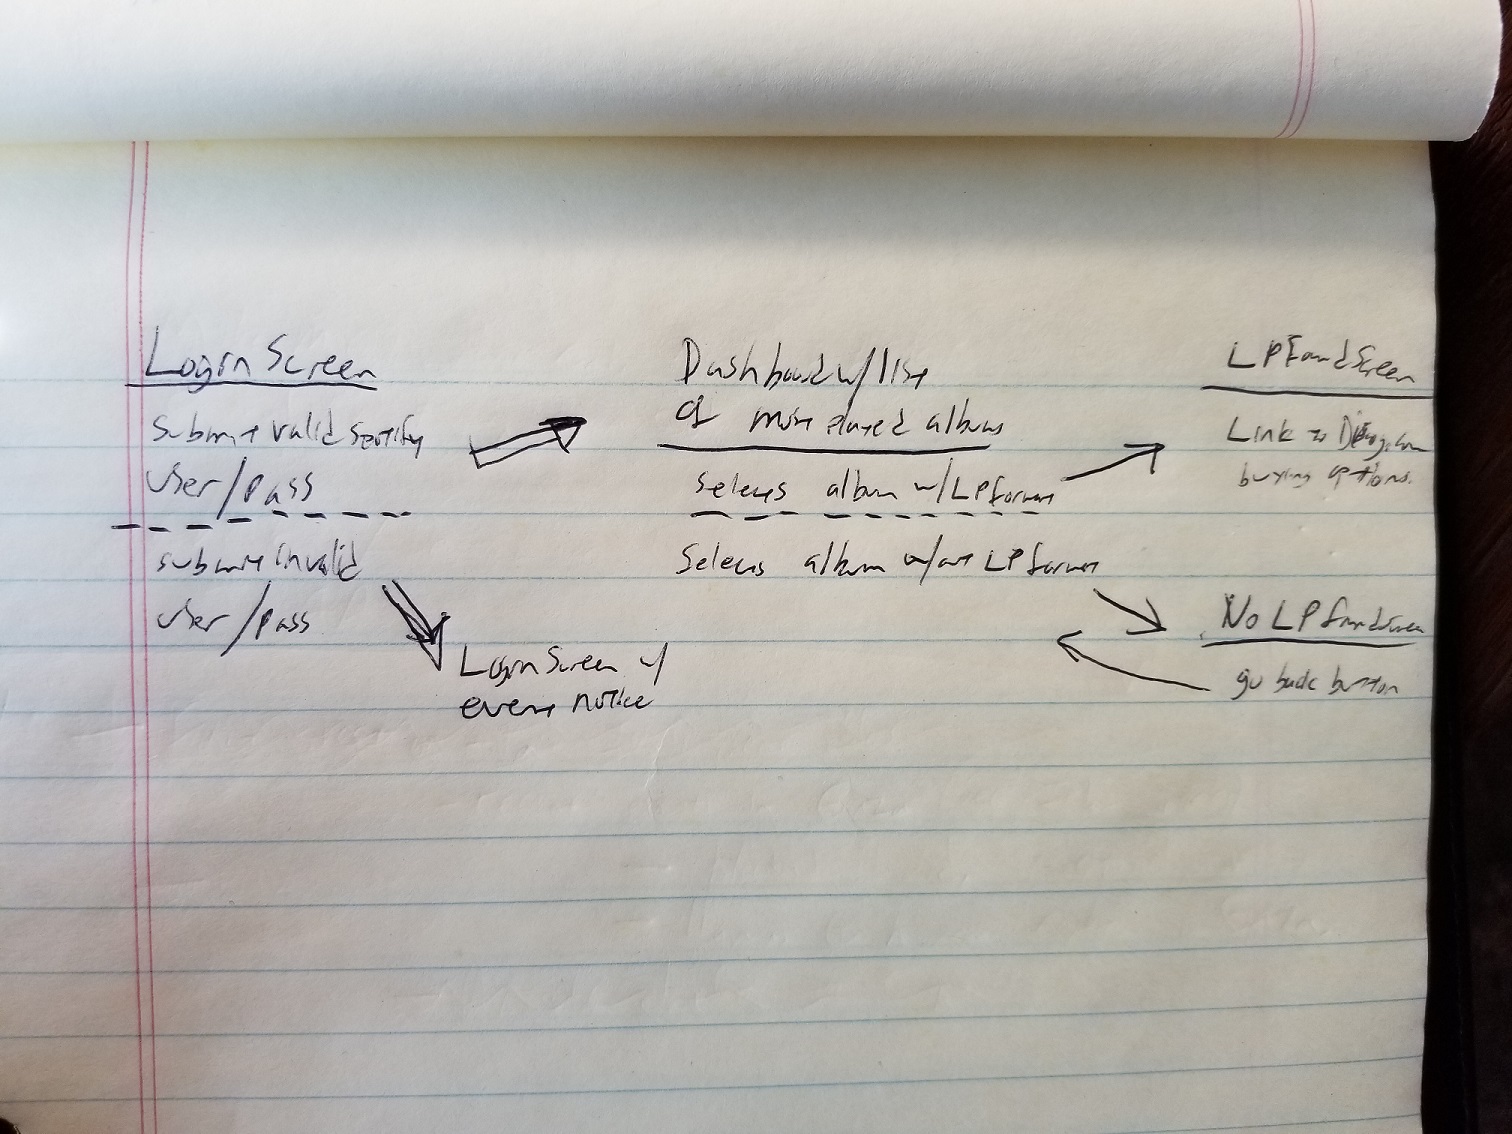 Login Screen
Submit valid Spotify
User/pass
submit invalid
user/pass
Login Screen w/
notice
Dashboard w/ list
of most played albums
selects album w/ LP format
Selects album w/out LP format
LP Found Screen
Link to
buying options.
No LP found screen
go back button